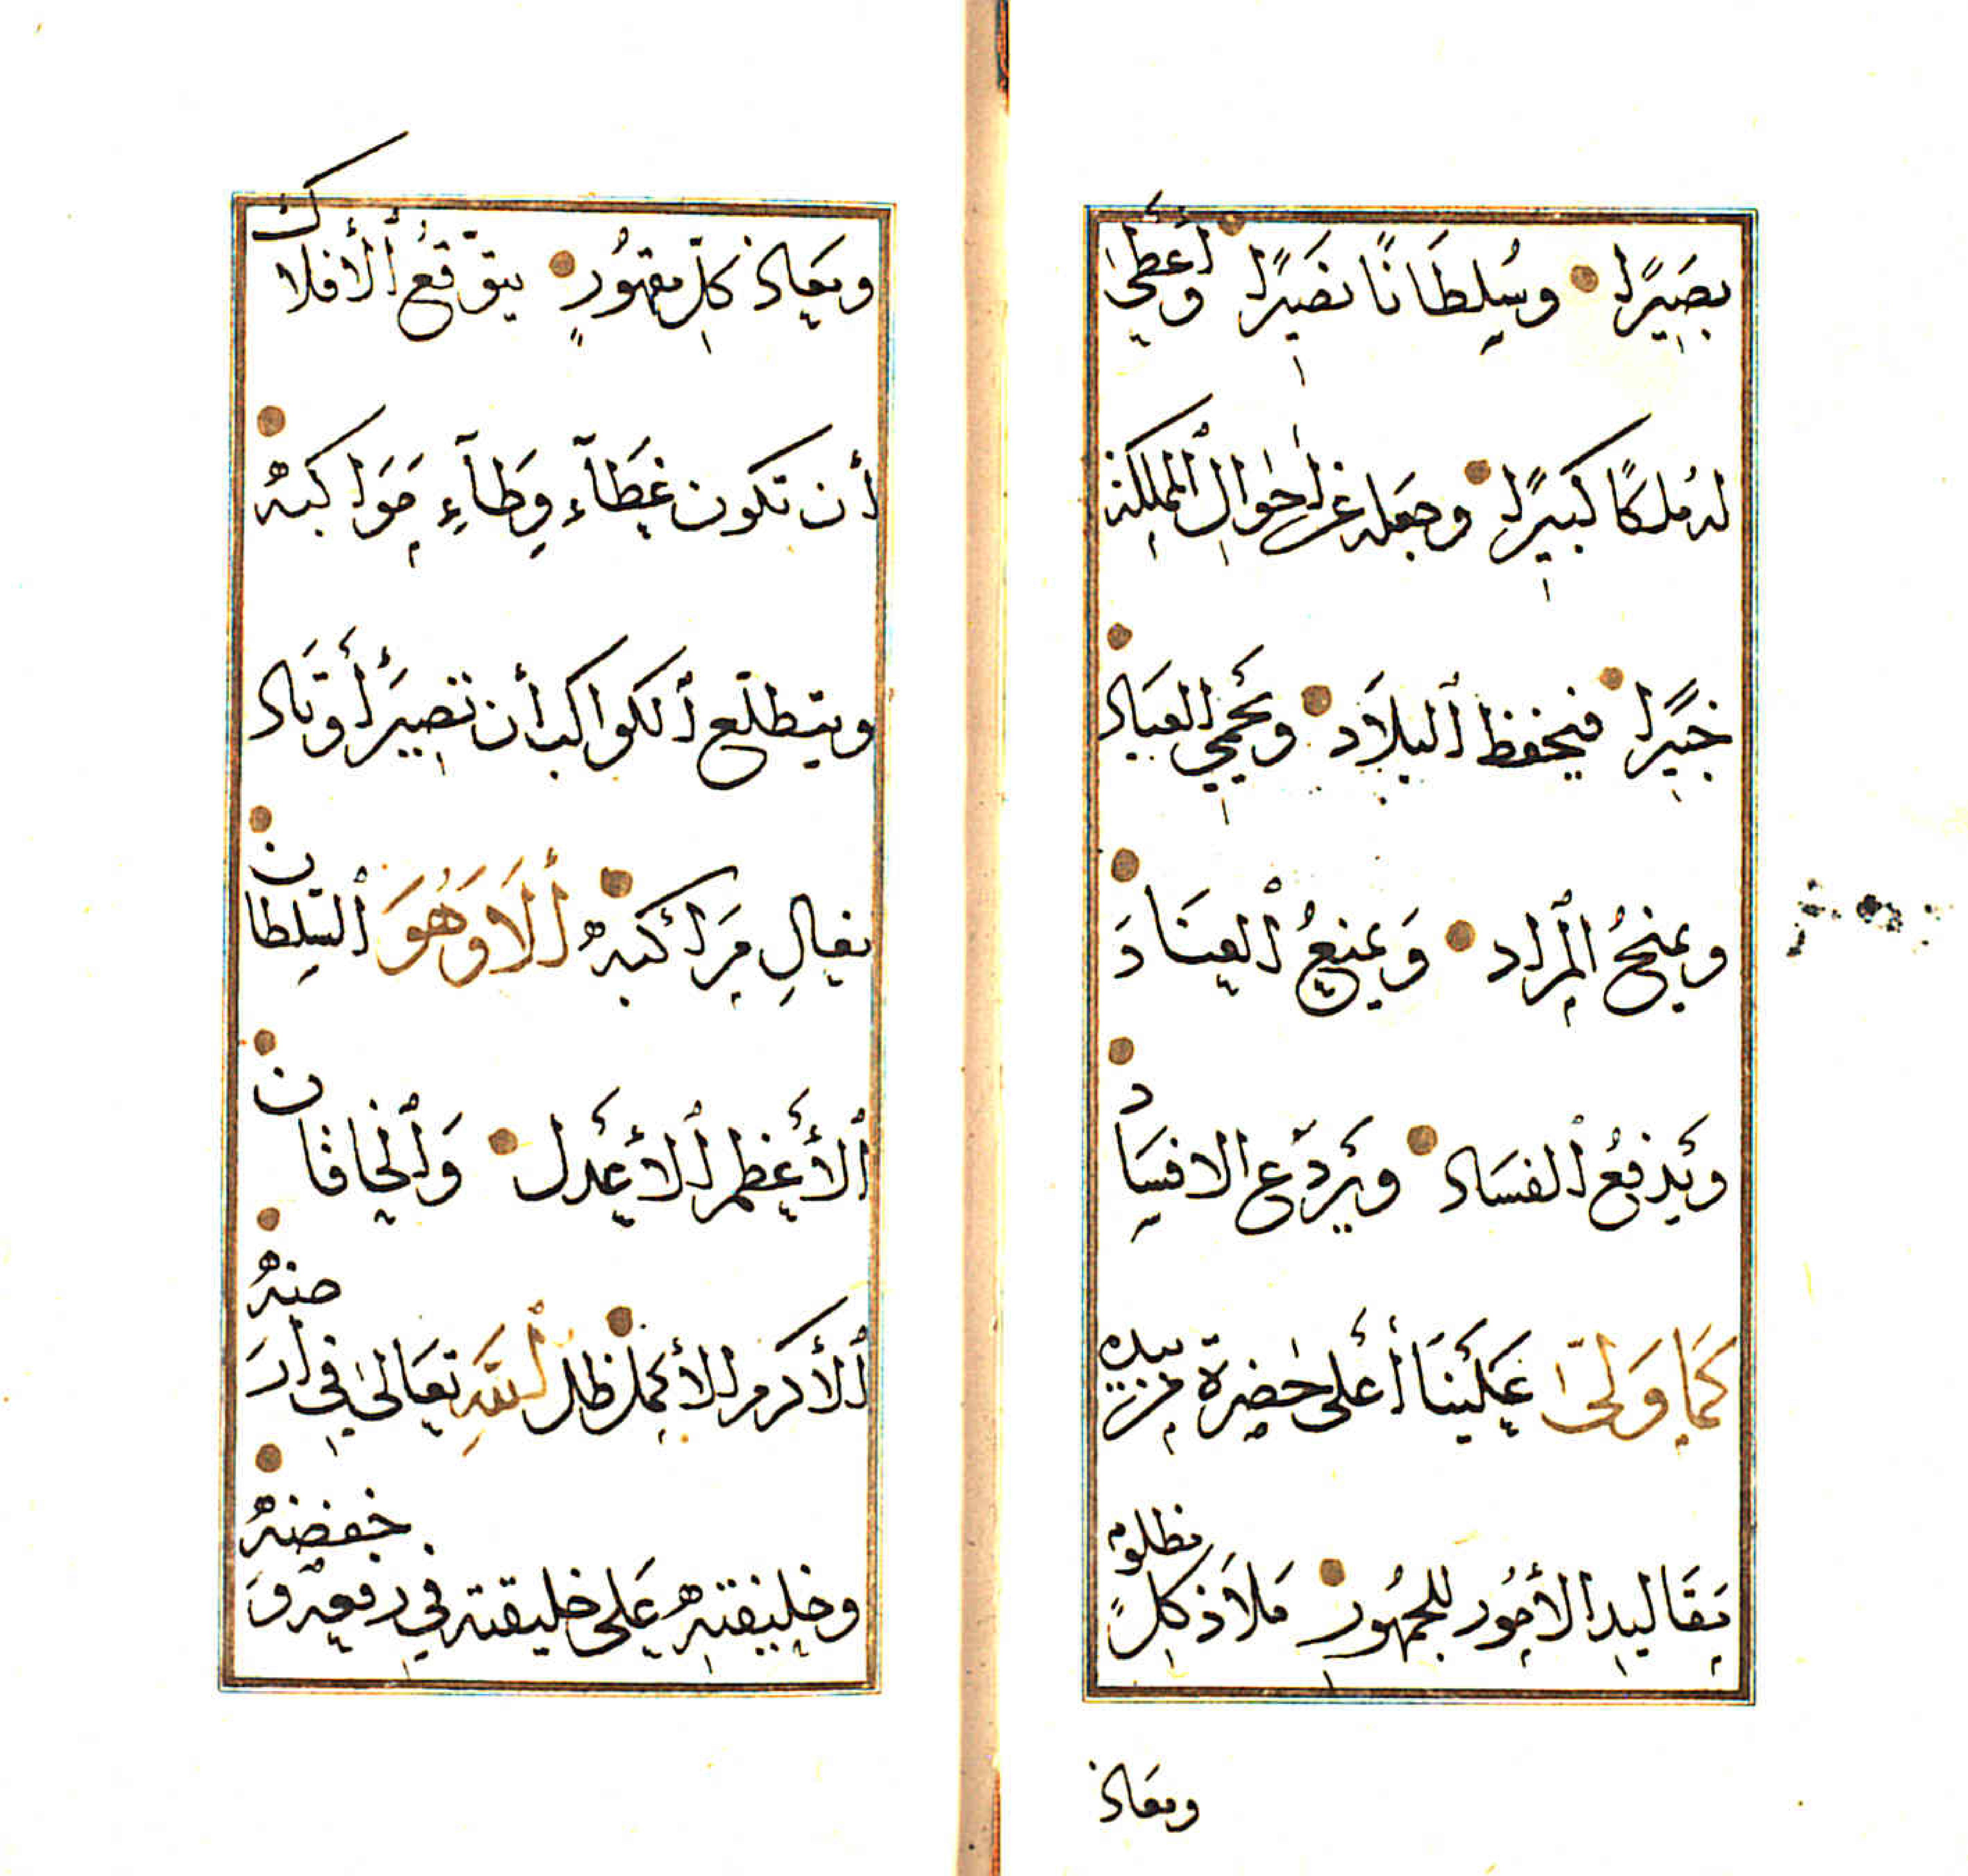 بَصِيرًا وسُلطَانًا نَصِيرًا وأَعْطىٰ
لهُ مُلكًا كَبيرًا وجعَله عَن أحْوالِ ٱلمملِكة
خبيرًا فيحفظ ٱلبلَاد ويَحْمِي العبَاد
ويمنحُ ٱلمراد وَيمنعُ ٱلعِنَادَ
ويَدْفعُ ٱلفسَاد ويَرْدَع الافسَاد
كَمَا وَلىّٰ عَلَيْنَا أَعْلى حَضرة من بيده
مَقَاليد الأمُور للجمهُور مَلاَذ كلِّ مظلوم
ومعاذ
ومعَاذ كلِّ مقهُورٍ يتوّقعُ ٱلأفلاك
أن تكون غِطَآء وِطَآءِ مَوَاكبهُ
ويتطلّع ٱلكواكب أن تصِيرَ أَوتَاد
نعالِ مَرَاكبهُ أَلَا وَهُوَ ٱلسّلطان
ٱلأَعْظم ٱلأَعْدل وَٱلخاقان
ٱلأكرم الأكمل ظل ٱللَّهِ تعَالىٰ في أرضهُ
وخليفتهُ عَلى خليقته في رفعهٖ وَخفضهُ